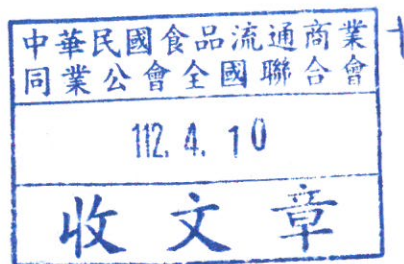 中華民國食品流通商業
同業公會全國聯合會
112. 4. 10
收文章